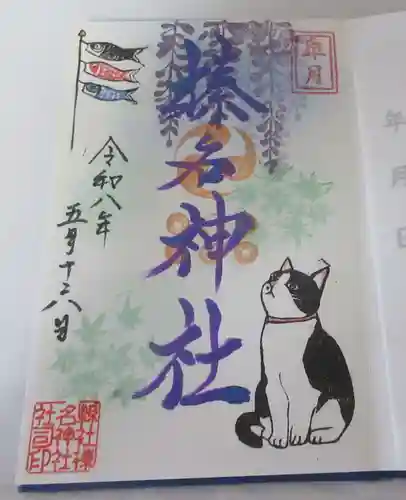 皐月
榛名神社
令和八年
五月十八日
縣社榛
名神社
社司印
年
月
日